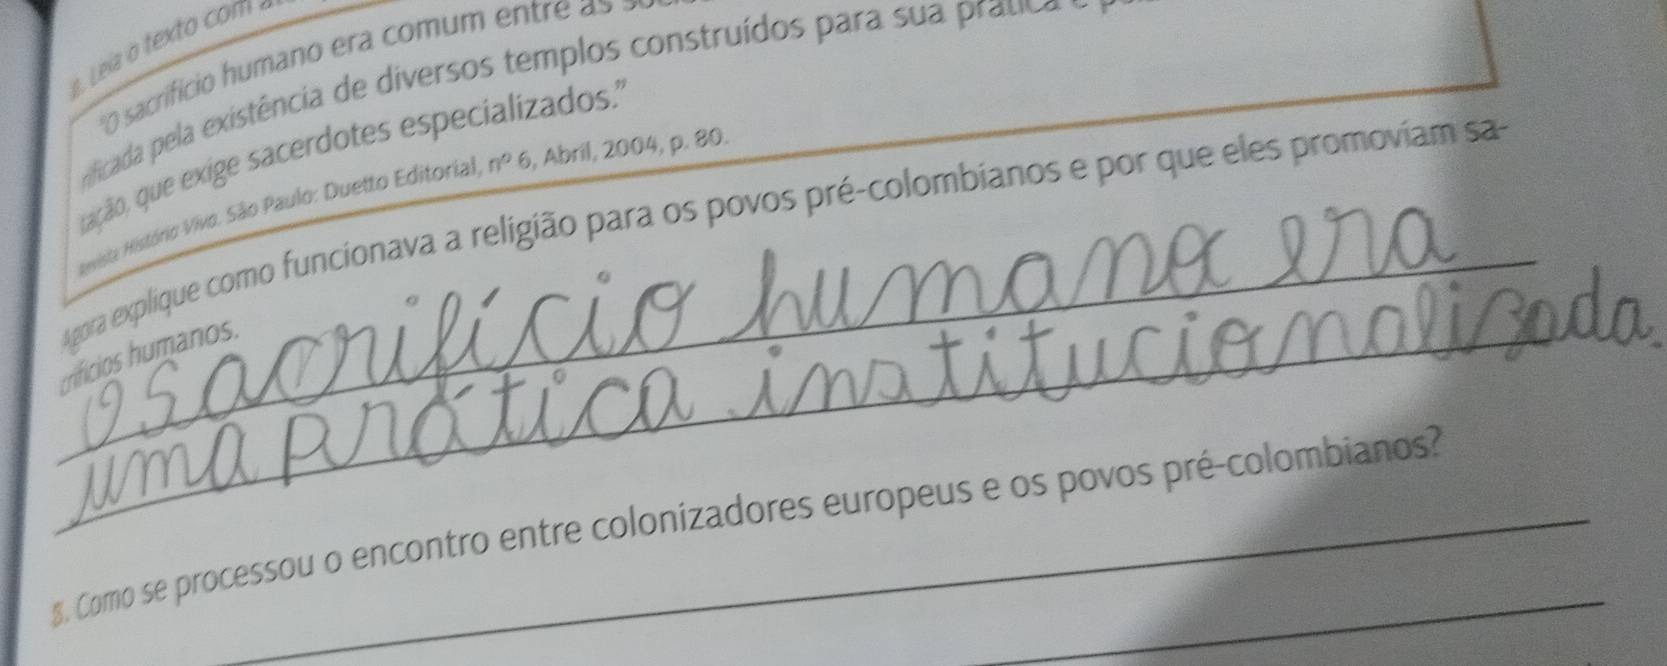 Leia o texto com
"O sacrifício humano era comum entre as
ificada pela existência de diversos templos construídos para sua prática e
tação, que exige sacerdotes especializados."
Revista História Viva. São Paulo: Duetto Editorial, nº 6, Abril, 2004, p. 80.
Agora explique como funcionava a religião para os povos pré-colombianos e por que eles promoviam sa-
crifícios humanos.
O sacrifício humano era
uma prática institucionalizada.
8. Como se processou o encontro entre colonizadores europeus e os povos pré-colombianos?